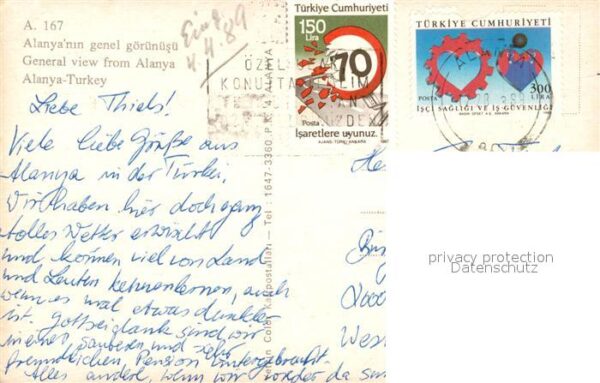 A. 167
Alanya'nın genel görünüşü
General view from Alanya
Alanya-Turkey
Eing.
4.4.89
Türkiye Cumhuriyeti
150
Lira
70
Posta
İşaretlere uyunuz.
AJANS-TÜRK/ANKARA
TÜRKİYE CUMHURİYETİ
POSTA
300
LİRA
İŞÇİ SAĞLIĞI VE İŞ GÜVENLİĞİ
ÖZEL
KONUT
Liebe Thiels!
Viele liebe Grüße aus
Alanya in der Türkei.
Wir haben hier doch ganz
tolles Wetter erwischt
und können viel von Land
und Leuten kennenlernen, auch
wenn es mal etwas dunkler
ist. Gottseidank sind wir
in einer sauberen und sehr
freundlichen Pension untergebracht.
Alles andere, wenn wir wieder da sind
Color Kartpostalları – Tel : 1647-3360, P.K.
West
privacy protection
Datenschutz